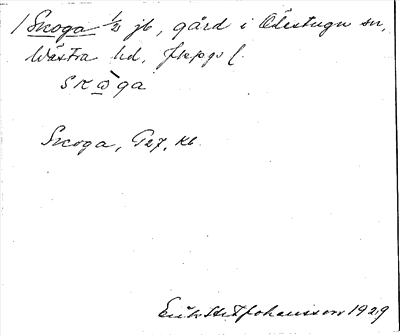 / Skoga ½ jb, gård i Ödestugu sn,
Västra hd, Jkpgs l.
skωga
Skoga, Gez, kb.
Erik Stef Johansson 1929